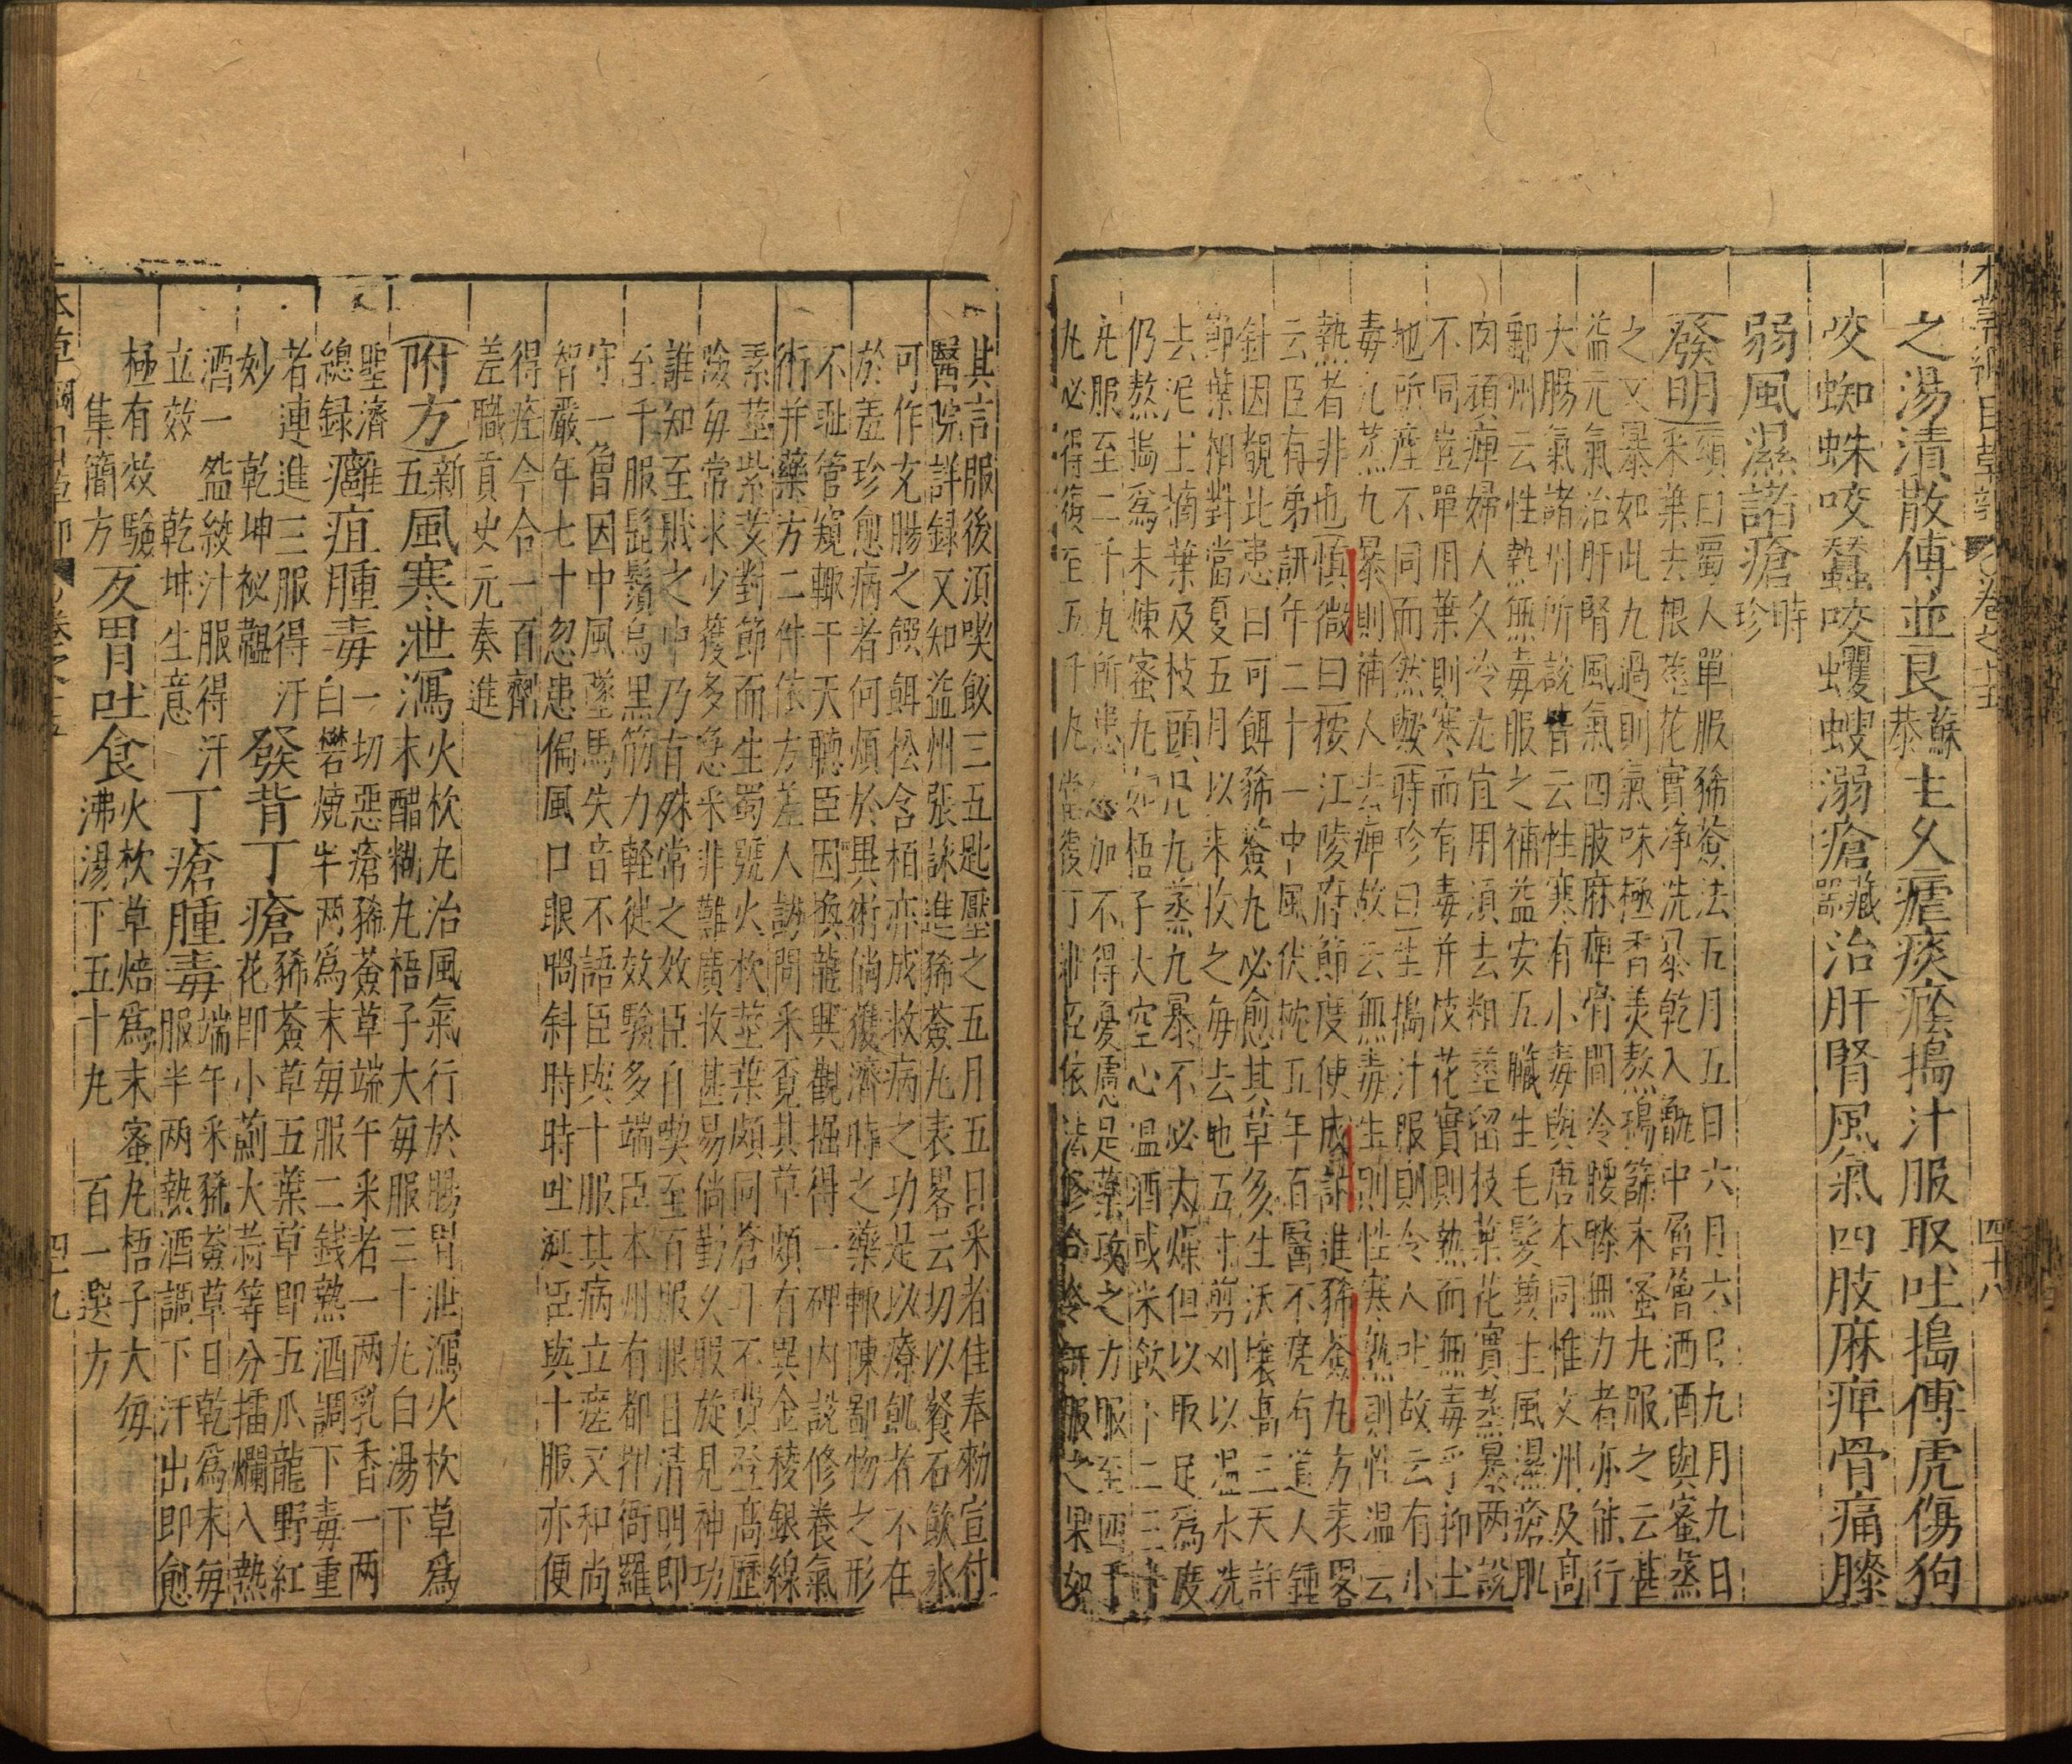 本草綱目草部 卷之十五 四十八
之湯漬散傅並良蘇恭主久瘧痰癊搗汁服取吐搗傅虎傷狗
咬蜘蛛咬蠶咬蠼螋溺瘡藏器治肝腎風氣四肢麻痺骨痛膝
弱風濕諸瘡時珍
發明頌曰蜀人單服豨薟法五月五日六月六日九月九日
采葉去根莖花實净洗暴乾入甑中層層洒酒與蜜蒸
之又暴如此九過則氣味極香美熬搗篩末蜜丸服之云甚
益元氣治肝腎風氣四肢麻痺骨間冷腰膝無力者亦能行
大腸氣諸州所說皆云性寒有小毒與唐本同惟文州及高
郵州云性熱無毒服之補益安五臟生毛髮兼主風濕瘡肌
肉頑痺婦人久冷尤宜用須去粗莖留枝葉花實蒸暴兩說
不同豈單用葉則寒而有毒并枝花實則熱而無毒乎抑土
地所產不同而然歟時珍曰生搗汁服則令人吐故云有小
毒九蒸九暴則補人去痺故云無毒生則性寒熟則性温云
熱者非也慎微曰按江陵府節度使成訥進豨薟丸方表畧
云臣有弟訮年二十一中風伏枕五年百醫不瘥有道人鍾
針因覩此患曰可餌豨薟丸必愈其草多生沃壤高三尺許
節葉相對當夏五月以来收之每去地五寸剪刈以温水洗
去泥土摘葉及枝頭凡九蒸九暴不必太燥但以取足為度
仍熬搗為末煉蜜丸如梧子大空心温酒或米飲下二三十
丸服至二千丸所患忽加不得憂慮是藥攻之力服至四千
丸必得復至五千丸當復丁壯臣依法修合令訮服之果如
其言服後須喫飯三五匙壓之五月五日采者佳奉敕宣付
醫院詳録又知益州張詠進豨薟丸表畧云切以餐石飲水
可作充腸之饌餌松含栢亦成救病之功足以療飢者不在
於羞珍愈病者何煩於異術倘獲濟時之藥輒陳鄙物之形
不耻管窺輒干天聽臣因換龍興觀掘得一碑内說修養氣
術并藥方二件依方差人訪問采覔其草頗有異金稜銀線
素莖紫荄對節而生蜀號火杴莖葉頗同蒼耳不費登高歷
險每常求少獲多急采非難廣收甚易倘勤久服旋見神功
誰知至賤之中乃有殊常之效臣自喫至百服眼目清明即
至千服髭鬚烏黑筋力輕徤效驗多端臣本州有都押衙羅
守一曾因中風墜馬失音不語臣與十服其病立瘥又和尚
智嚴年七十忽患偏風口眼喎斜時時吐涎臣與十服亦便
得痊今合一百劑
差職貢史元奏進
附方新五風寒泄瀉火杴丸治風氣行於腸胃泄瀉火杴草為
末醋糊丸梧子大每服三十丸白湯下
聖濟總録癰疽腫毒一切惡瘡豨薟草端午采者一兩乳香一兩
白礬燒半兩為末每服二錢熱酒調下毒重
者連進三服得汗妙乾坤秘韞發背丁瘡豨薟草五葉草即五爪龍野紅
花即小薊大蒜等分擂爛入熱
酒一盌絞汁服得汗立效乾坤生意丁瘡腫毒端午采豨薟草日乾為末每
服半兩熱酒調下汗出即愈
極有效驗集簡方反胃吐食火杴草焙為末蜜丸梧子大每
沸湯下五十丸百一選方
本草綱目草部 卷之十五 四十九